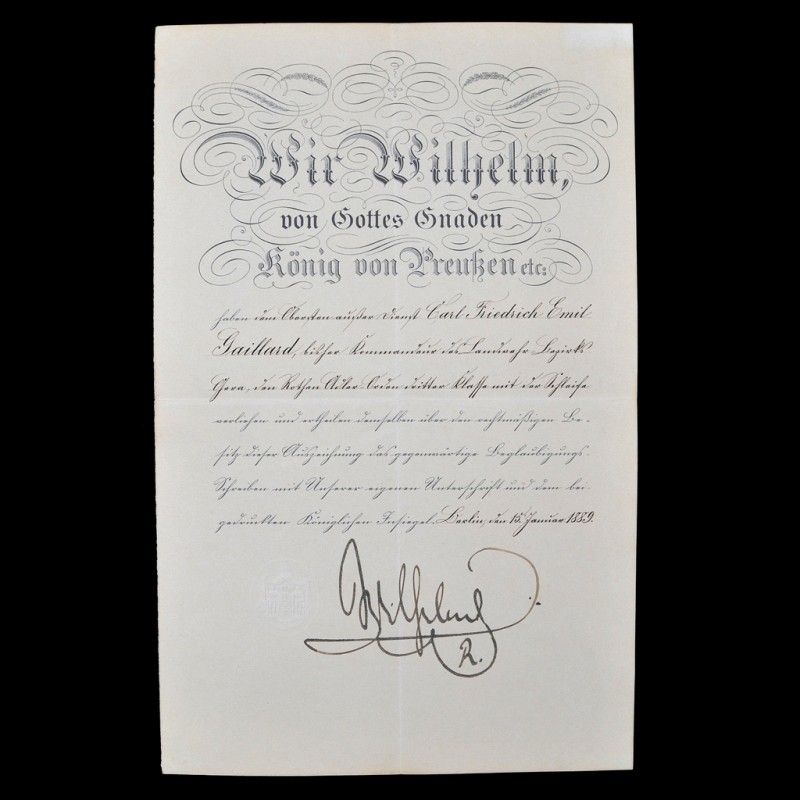 Wir Wilhelm,
von Gottes Gnaden
König von Preußen etc:
haben dem Obersten außer Dienst Carl Friedrich Emil
Gaillard, bisher Kommandeur des Landwehr Bezirks
Gera, den Rothen Adler Orden dritter Klasse mit der Schleife
verliehen und ertheilen demselben über den rechtmäßigen Be-
sitz dieser Auszeichnung das gegenwärtige Beglaubigungs-
Schreiben mit Unserer eigenen Unterschrift und dem bei-
gedruckten Königlichen Insiegel. Berlin, den 15. Januar 1889.
Wilhelm
R.